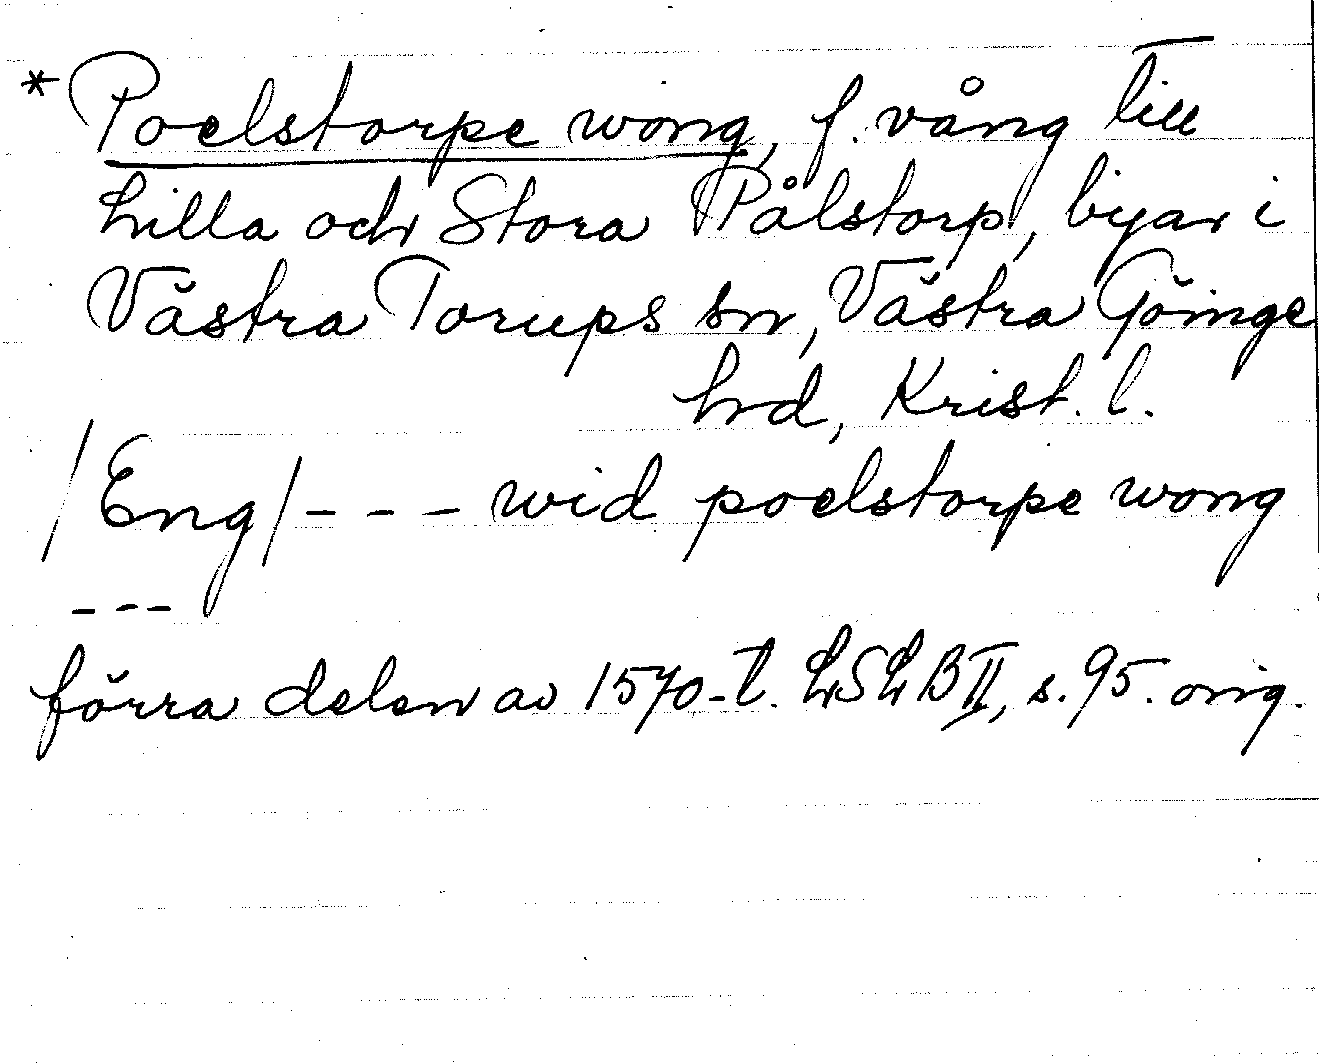 * Poelstorpe wong, f. vång till
Lilla och Stora Pålstorp, byar i
Västra Torups sn, Västra Göinge
hrd, Krist. l.
/Eng/ - - - wid poelstorpe wong
- - -
förra delen av 1570-t. LSLB II, s. 95. orig.